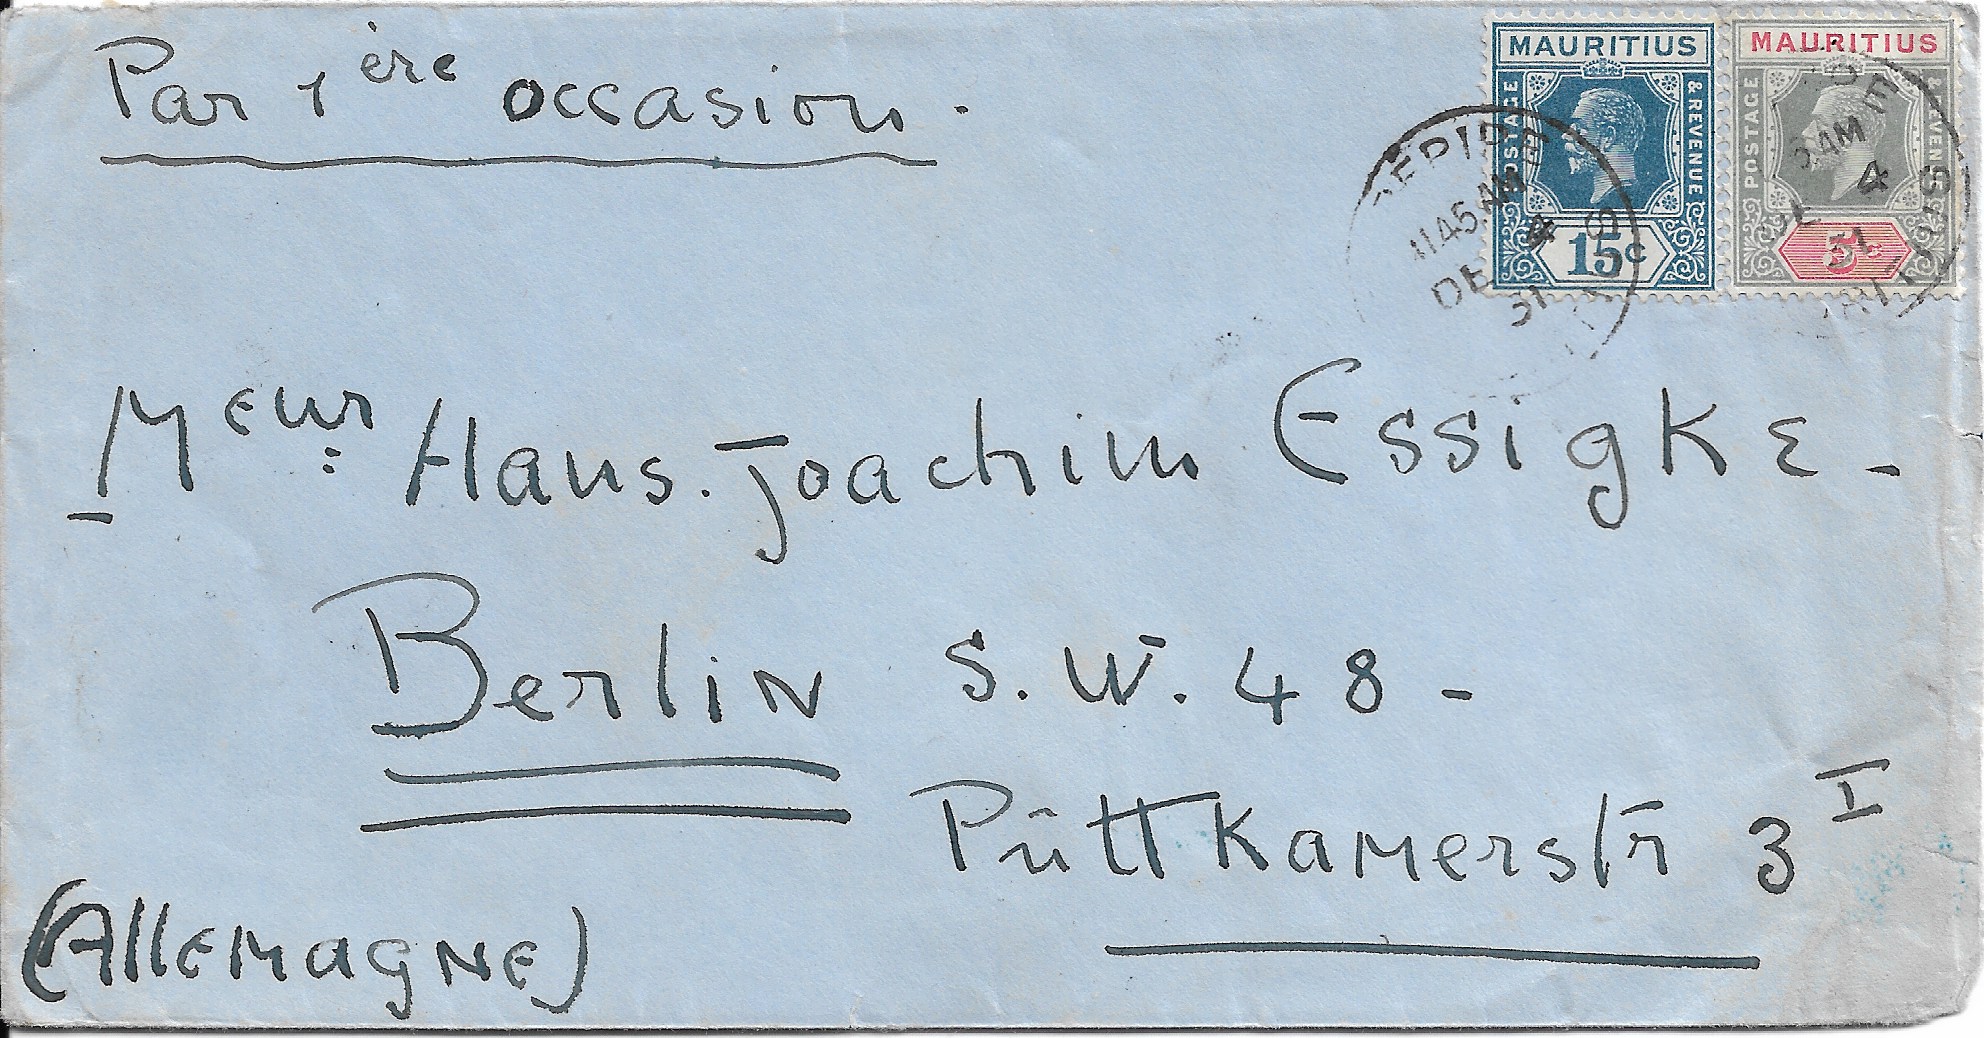 Par 1ère occasion.
MAURITIUS
POSTAGE & REVENUE
15c
MAURITIUS
POSTAGE & REVENUE
5c
11 45 AM
DE 4
31
AM
DE 4
31
Meur: Hans-Joachim Essigke-
Berlin S.W. 48-
Pūttkamerstr 3 I
(Allemagne)